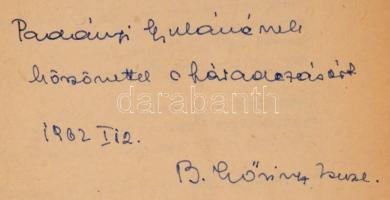 Padányi Gyulánénak
köszönettel a fáradozásért
1962 I 12.
B. Lőrincz Zsuzs.
darabanth